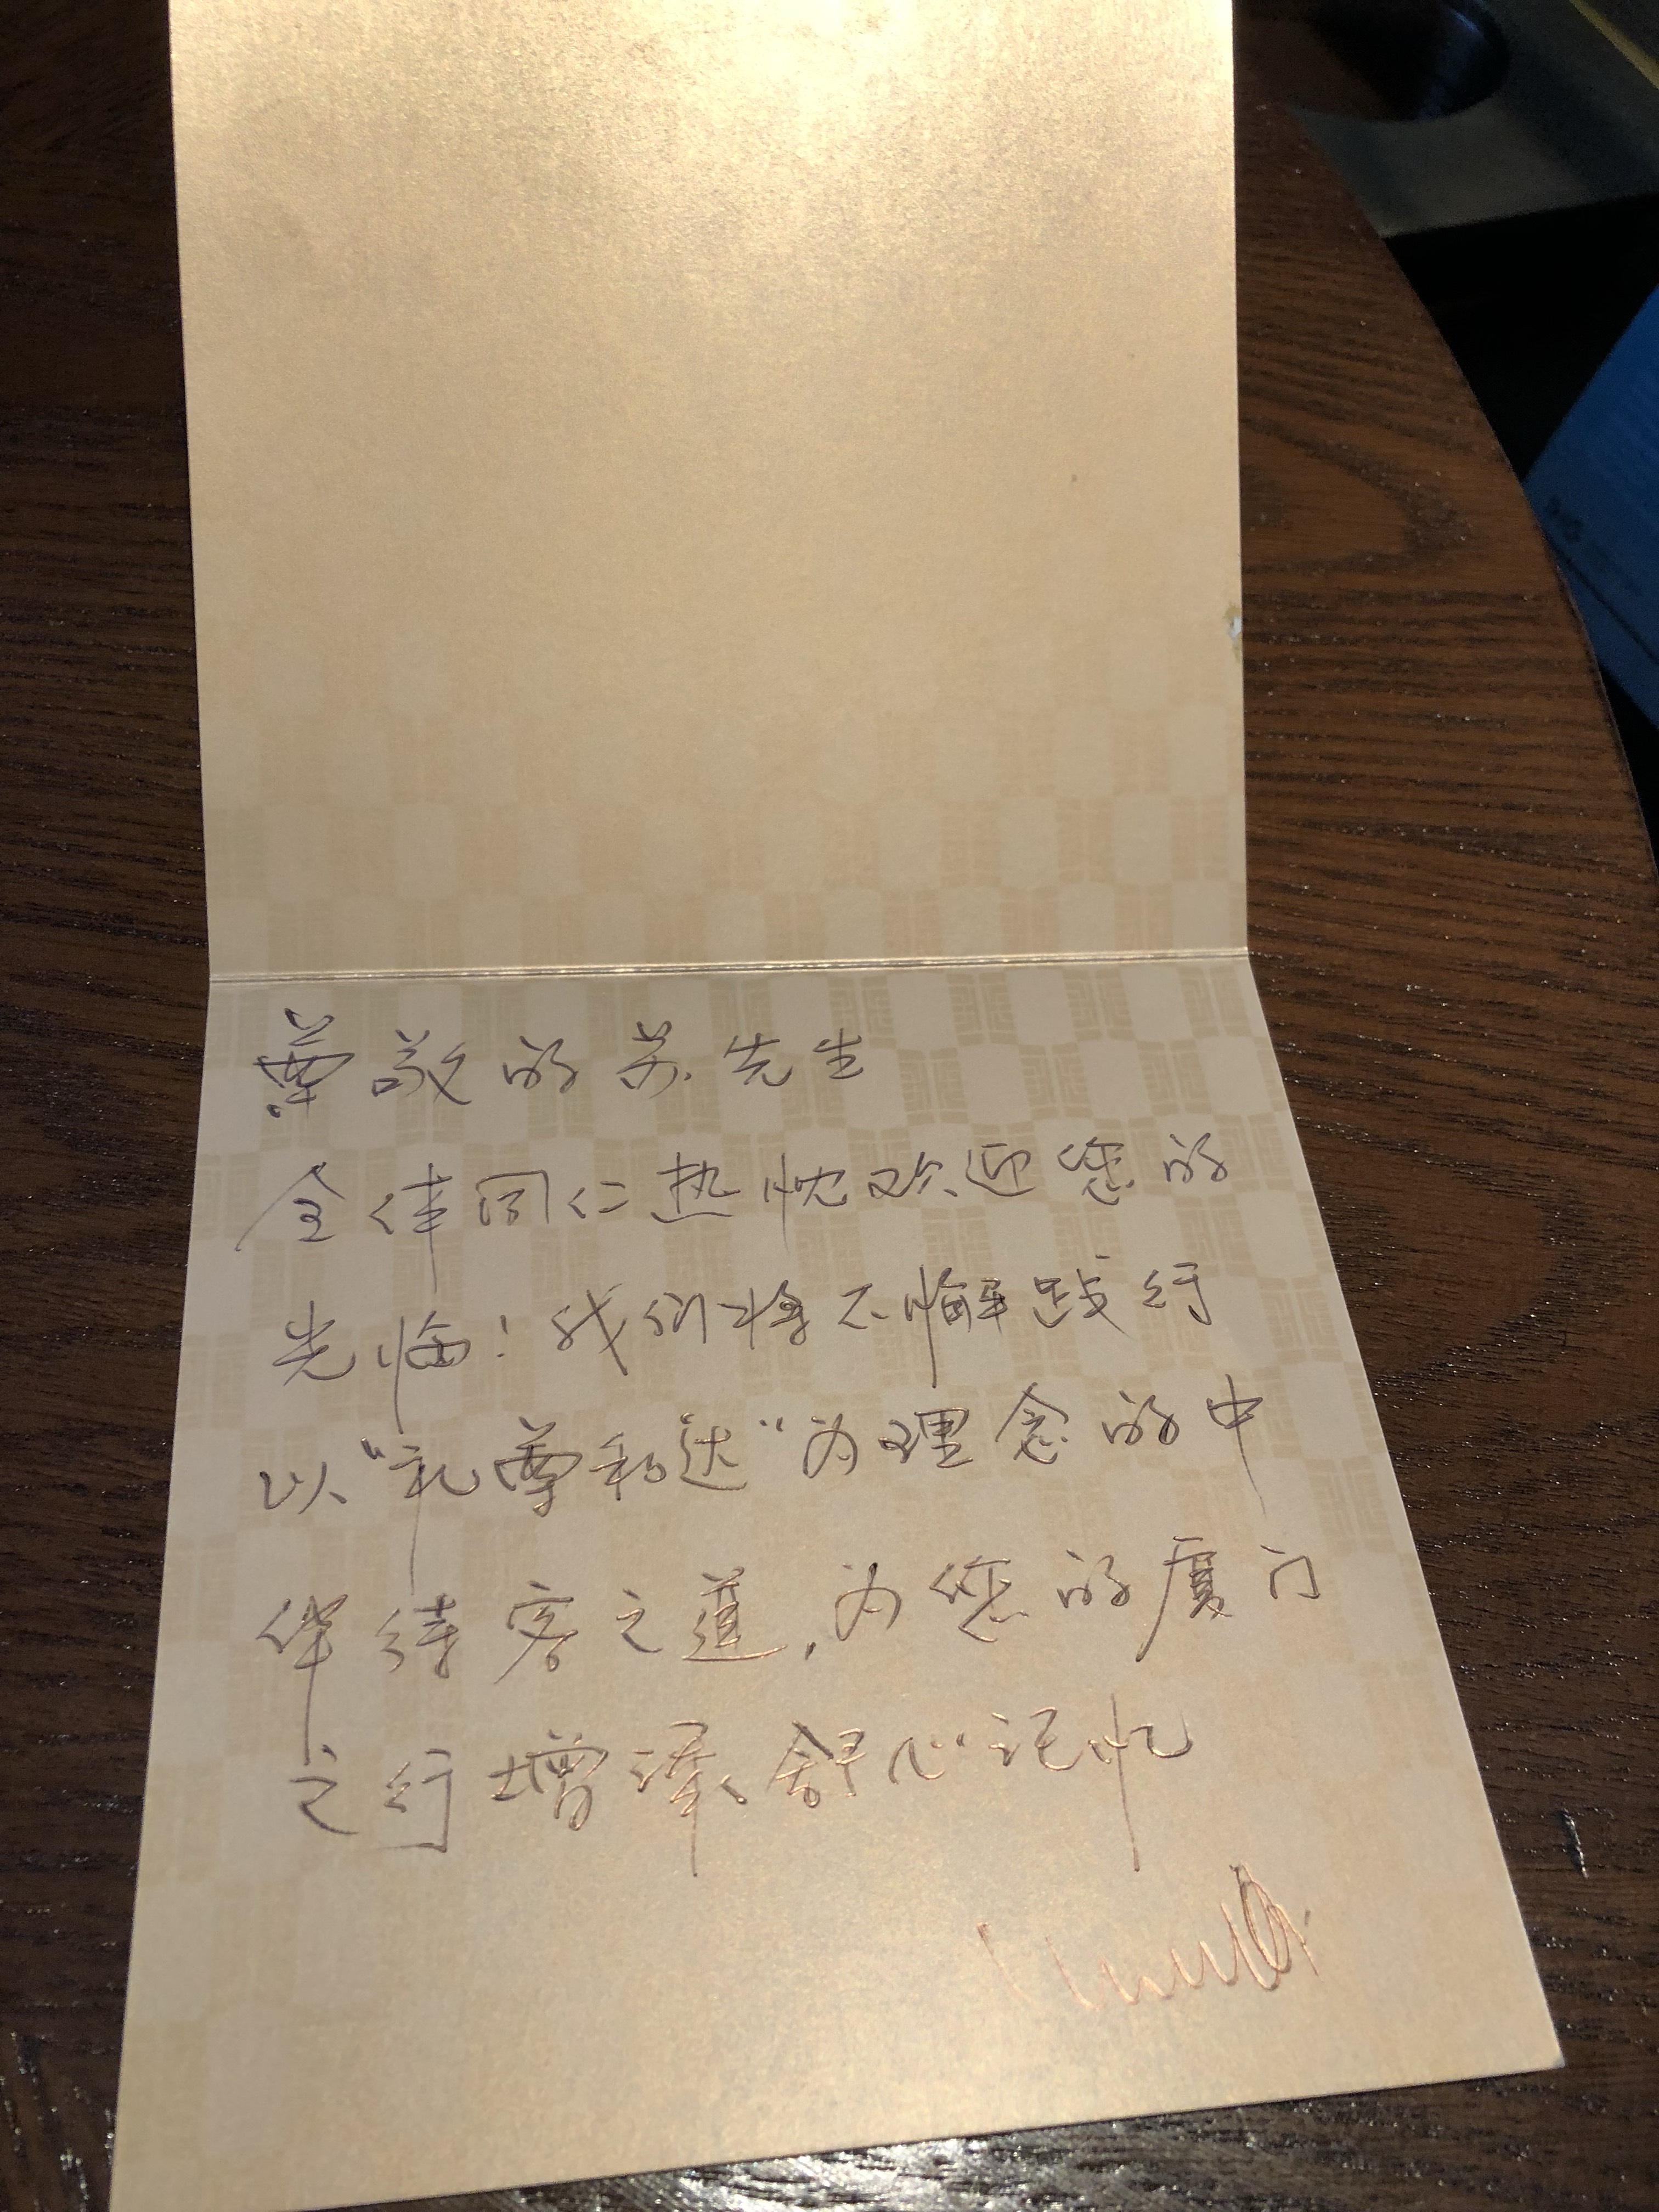 尊敬的苏先生
全体同仁热忱欢迎您的
光临！我们将不懈践行
以“礼尊和达”为理念的中
华待客之道，为您的厦门
之行增添舒心记忆